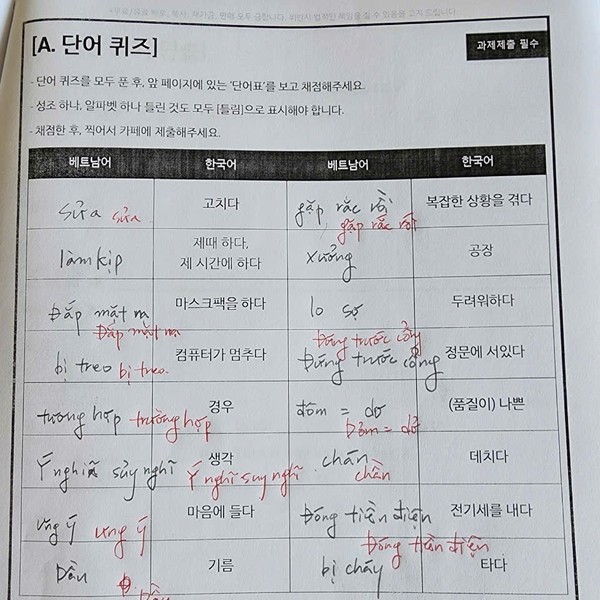 [A. 단어 퀴즈]
과제제출 필수
- 단어 퀴즈를 모두 푼 후, 앞 페이지에 있는 '단어표'를 보고 채점해주세요.
- 성조 하나, 알파벳 하나 틀린 것도 모두 [틀림]으로 표시해야 합니다.
- 채점한 후, 찍어서 카페에 제출해주세요.
베트남어 한국어 베트남어 한국어
sửa sửa 고치다 gặp rắc rồi gặp rắc rối 복잡한 상황을 겪다
làm kịp 제때 하다, 제 시간에 하다 xưởng 공장
Đắp mặt nạ Đắp mặt nạ 마스크팩을 하다 lo sợ 두려워하다
bị treo bị treo 컴퓨터가 멈추다 Đứng trước cổng Đứng trước cổng 정문에 서있다
tương hợp trường hợp 경우 đôm = dơ Đỏm = dở (품질이) 나쁜
Ý nghĩ sủy nghĩ Ý nghĩ suy nghĩ 생각 chán chần 데치다
ưng ý ưng ý 마음에 들다 Đóng tiền điện Đóng tiền điện 전기세를 내다
Dầu Dầu 기름 bị cháy 타다